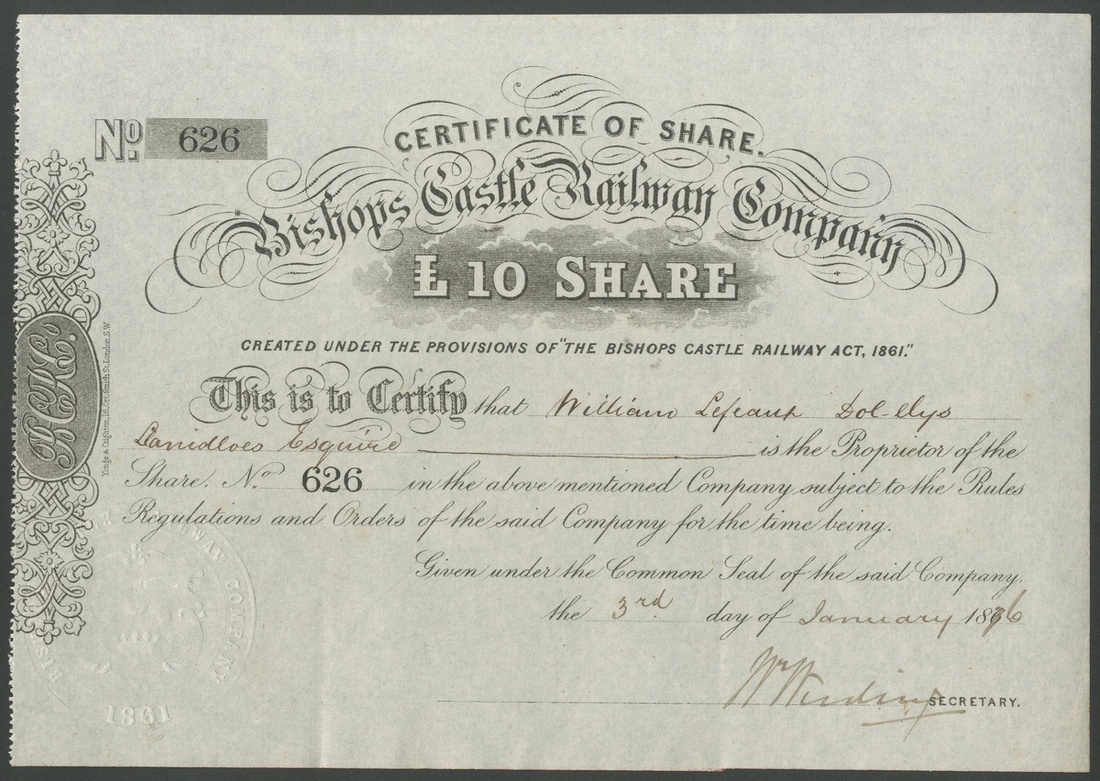 No. 626
CERTIFICATE OF SHARE.
Bishops Castle Railway Company
£10 SHARE
CREATED UNDER THE PROVISIONS OF "THE BISHOPS CASTLE RAILWAY ACT, 1861."
This is to Certify that William Lefeaux Dol-llys
Llanidloes Esquire is the Proprietor of the
Share. No. 626 in the above mentioned Company subject to the Rules
Regulations and Orders of the said Company for the time being.
Given under the Common Seal of the said Company.
the 3rd day of January 1876
SECRETARY.
RAILWAY COMPANY
1861